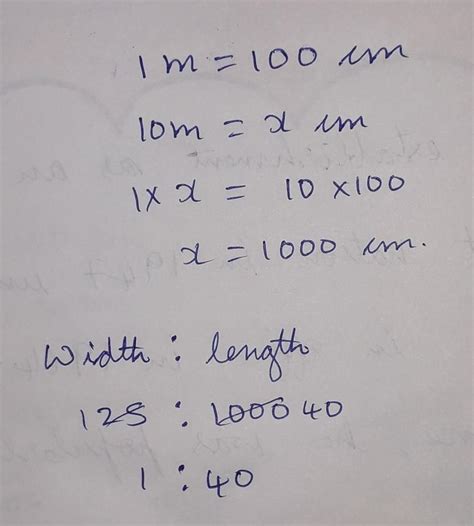 1 m = 100 cm
10m = x cm
1 × x = 10 × 100
x = 1000 cm.
Width : length
125 : 1000 40
1 : 40